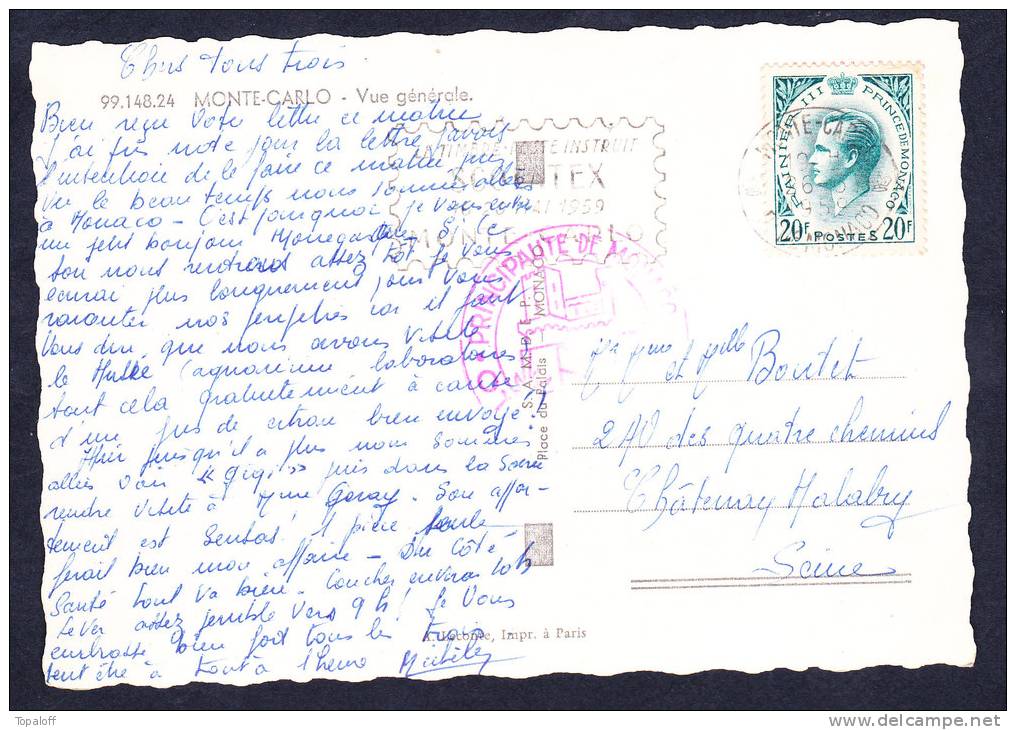 Chers tous trois
99.148.24 MONTE-CARLO - Vue générale.
Bien reçu votre lettre ce matin
J'ai pris note pour la lettre j'avais
l'intention de le faire ce matin mais
vu le beau temps nous sommes allées
à Monaco - C'est pourquoi je vous envoie
un petit bonjour Monégasque Si ce
soir nous rentrons assez tôt je vous
écrirai plus longuement pour vous
raconter nos péripéties car il faut
vous dire que nous avons visité
le Musée (aquarium laboratoires
tout cela gratuitement à cause
d'un jus de citron bien envoyé
Hier puisqu'il a plu nous sommes
allées voir "Gigi" puis dans la soirée
rendre visite à Mme - Son appar-
tement est Sensas! 1 pièce seule
ferait bien mon affaire - Du côté
Santé tout va bien - Coucher environ 10h
Lever assez pénible vers 9h! Je vous
embrasse bien fort tous les trois
peut être à tout à l'heure Michèle
LE TIMBRE-POSTE INSTRUIT
TEX
MAI 1959
MONTE-CARLO
PRINCIPAUTE DE MONACO
RAINIER III PRINCE DE MONACO
20F POSTES 20F
MONTE-CARLO
MONACO
S. A. M. D. E. P.
Place du Palais - MONACO
Mr Mme et fille Boutet
240 des quatre chemins
Châtenay Malabry
Seine
A. Leconte, Impr. à Paris
Topaloff
www.delcampe.net